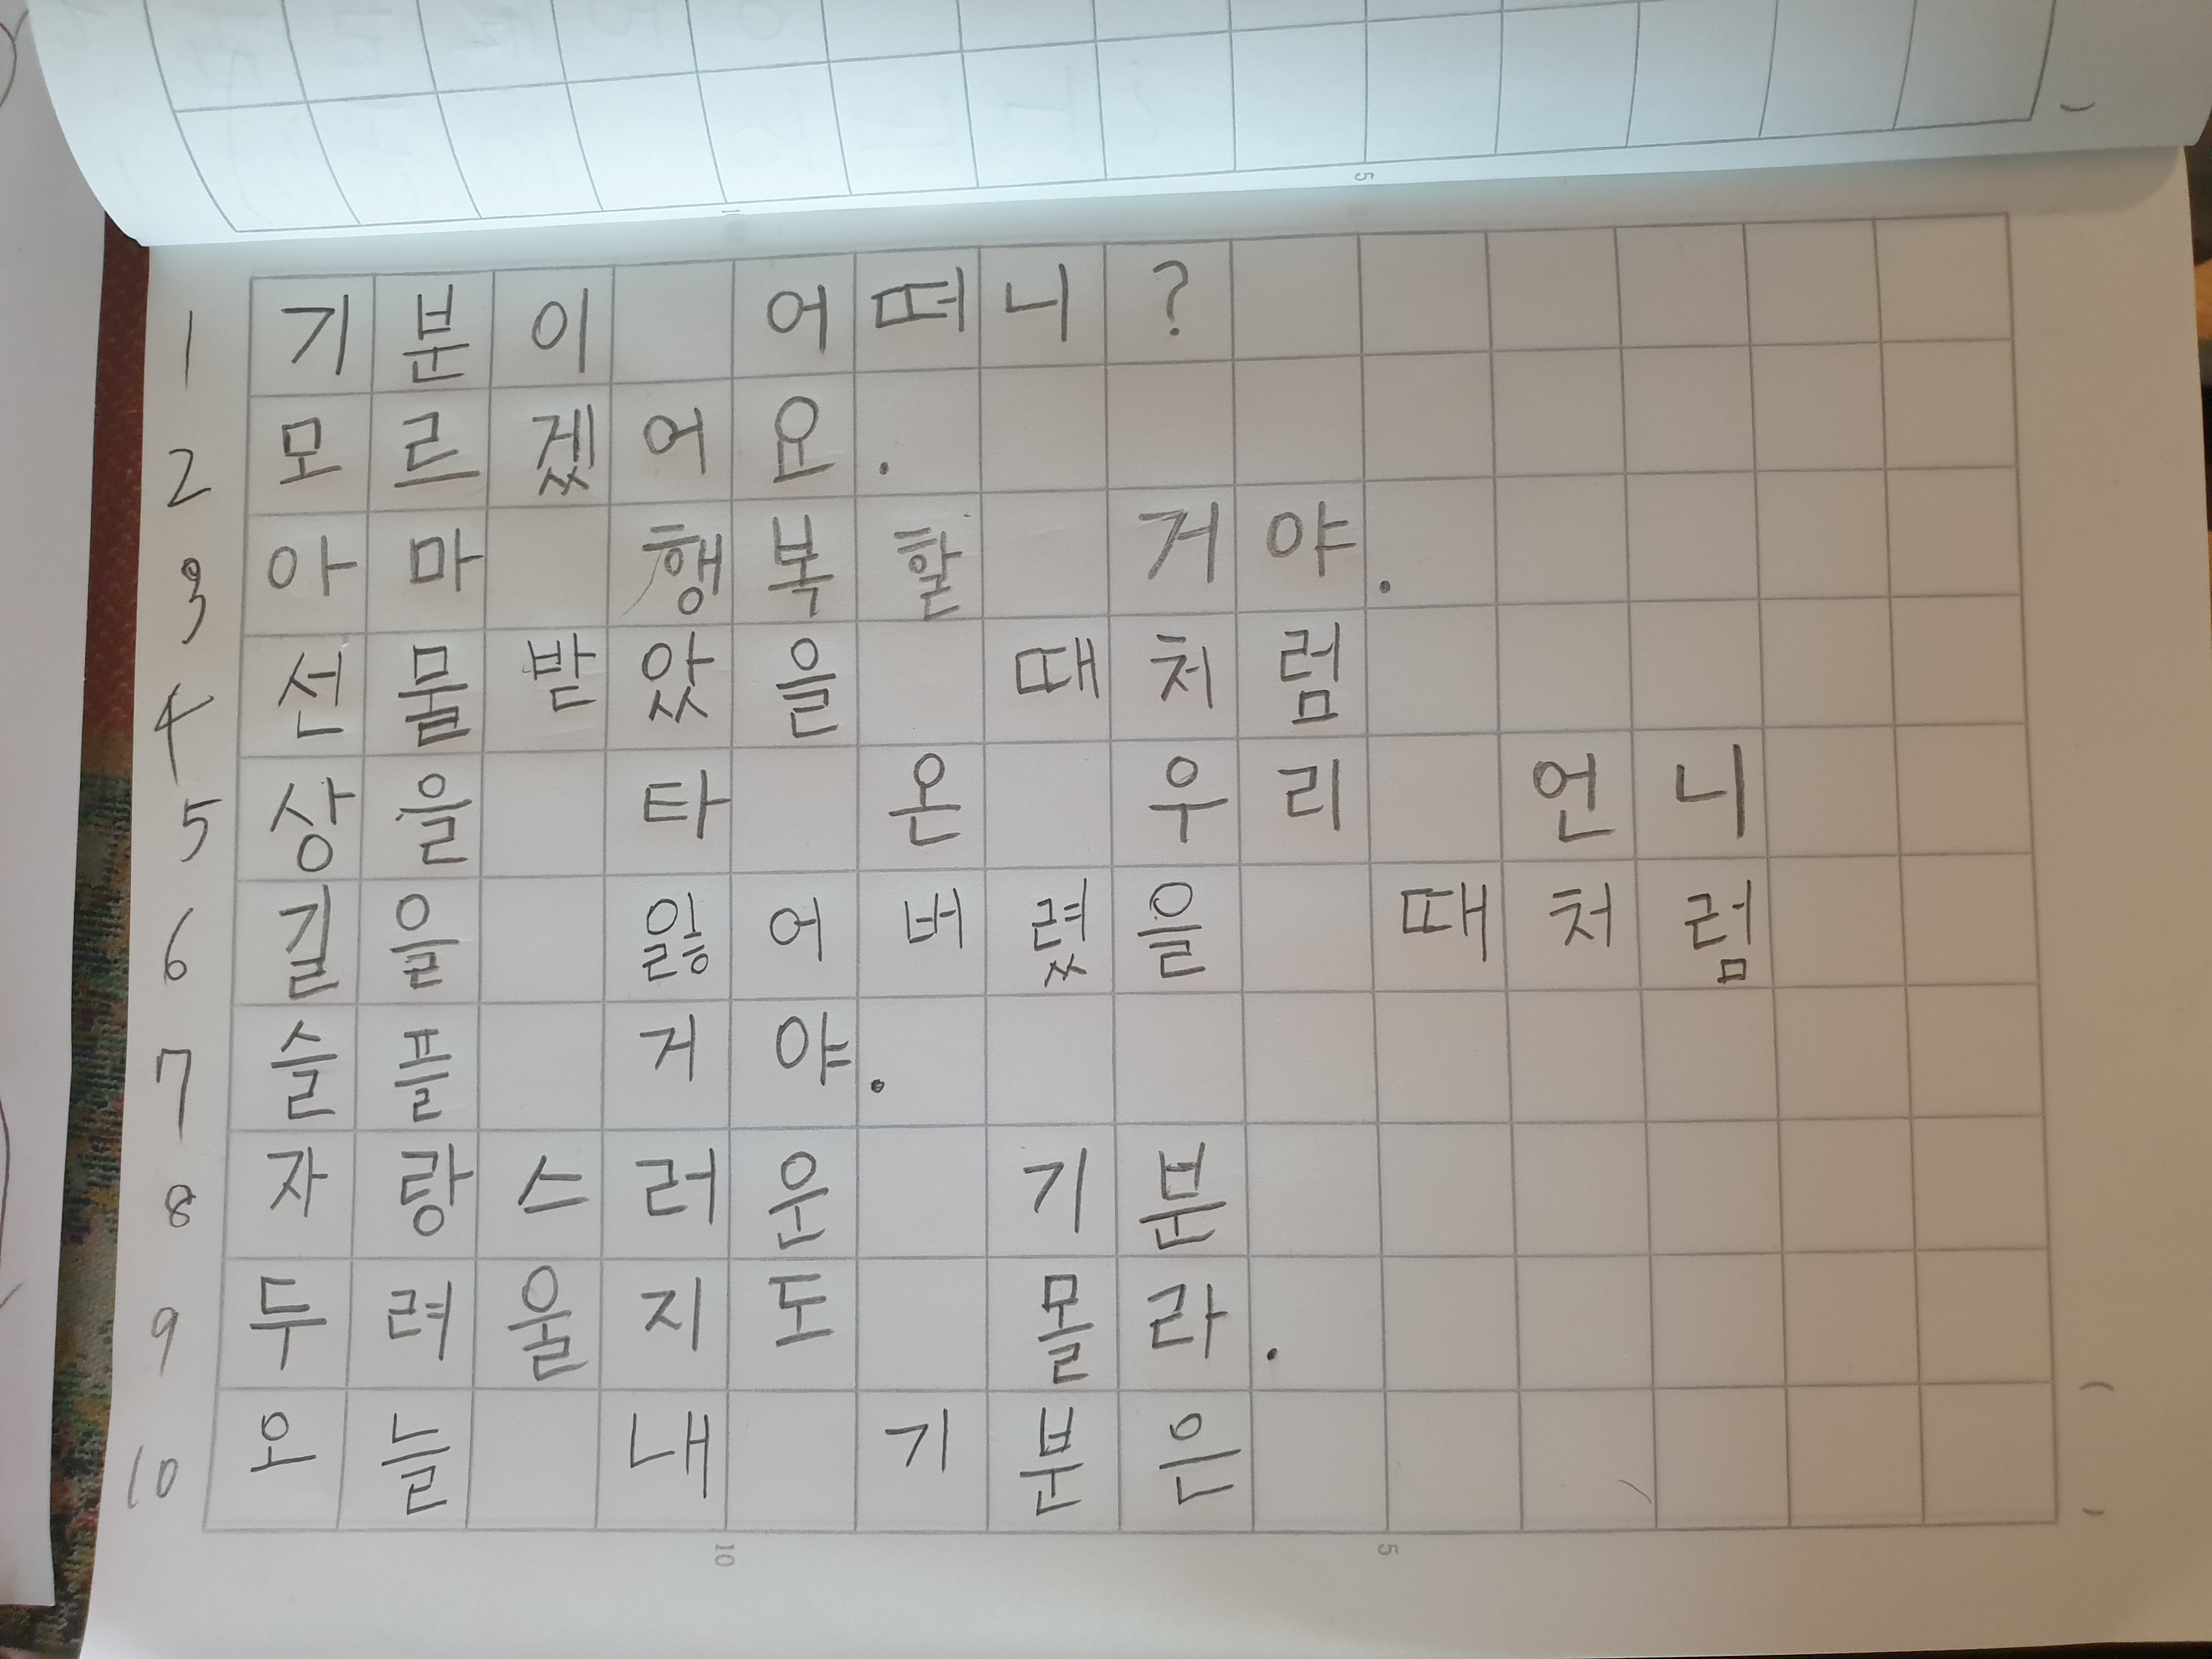 1 기분이 어떠니?
2 모르겠어요.
3 아마 행복할 거야.
4 선물받았을 때처럼
5 상을 타 온 우리 언니
6 길을 잃어버렸을 때처럼
7 슬플 거야.
8 자랑스러운 기분
9 두려울지도 몰라.
10 오늘 내 기분은
10 5